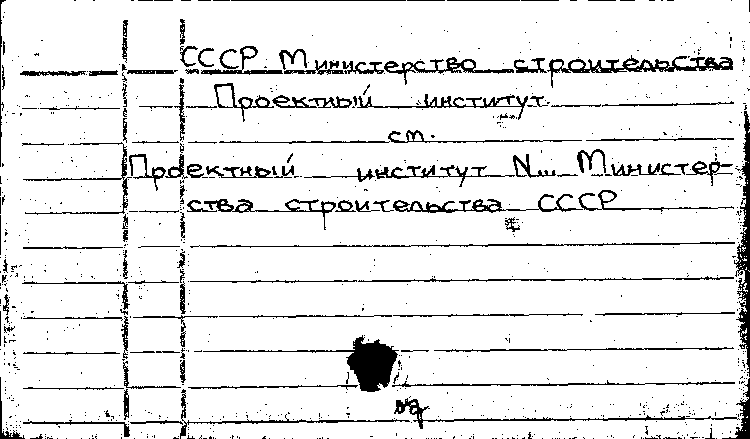 СССР. Министерство строительства
Проектный институт
см.
Проектный институт N... Министер-
ства строительства СССР